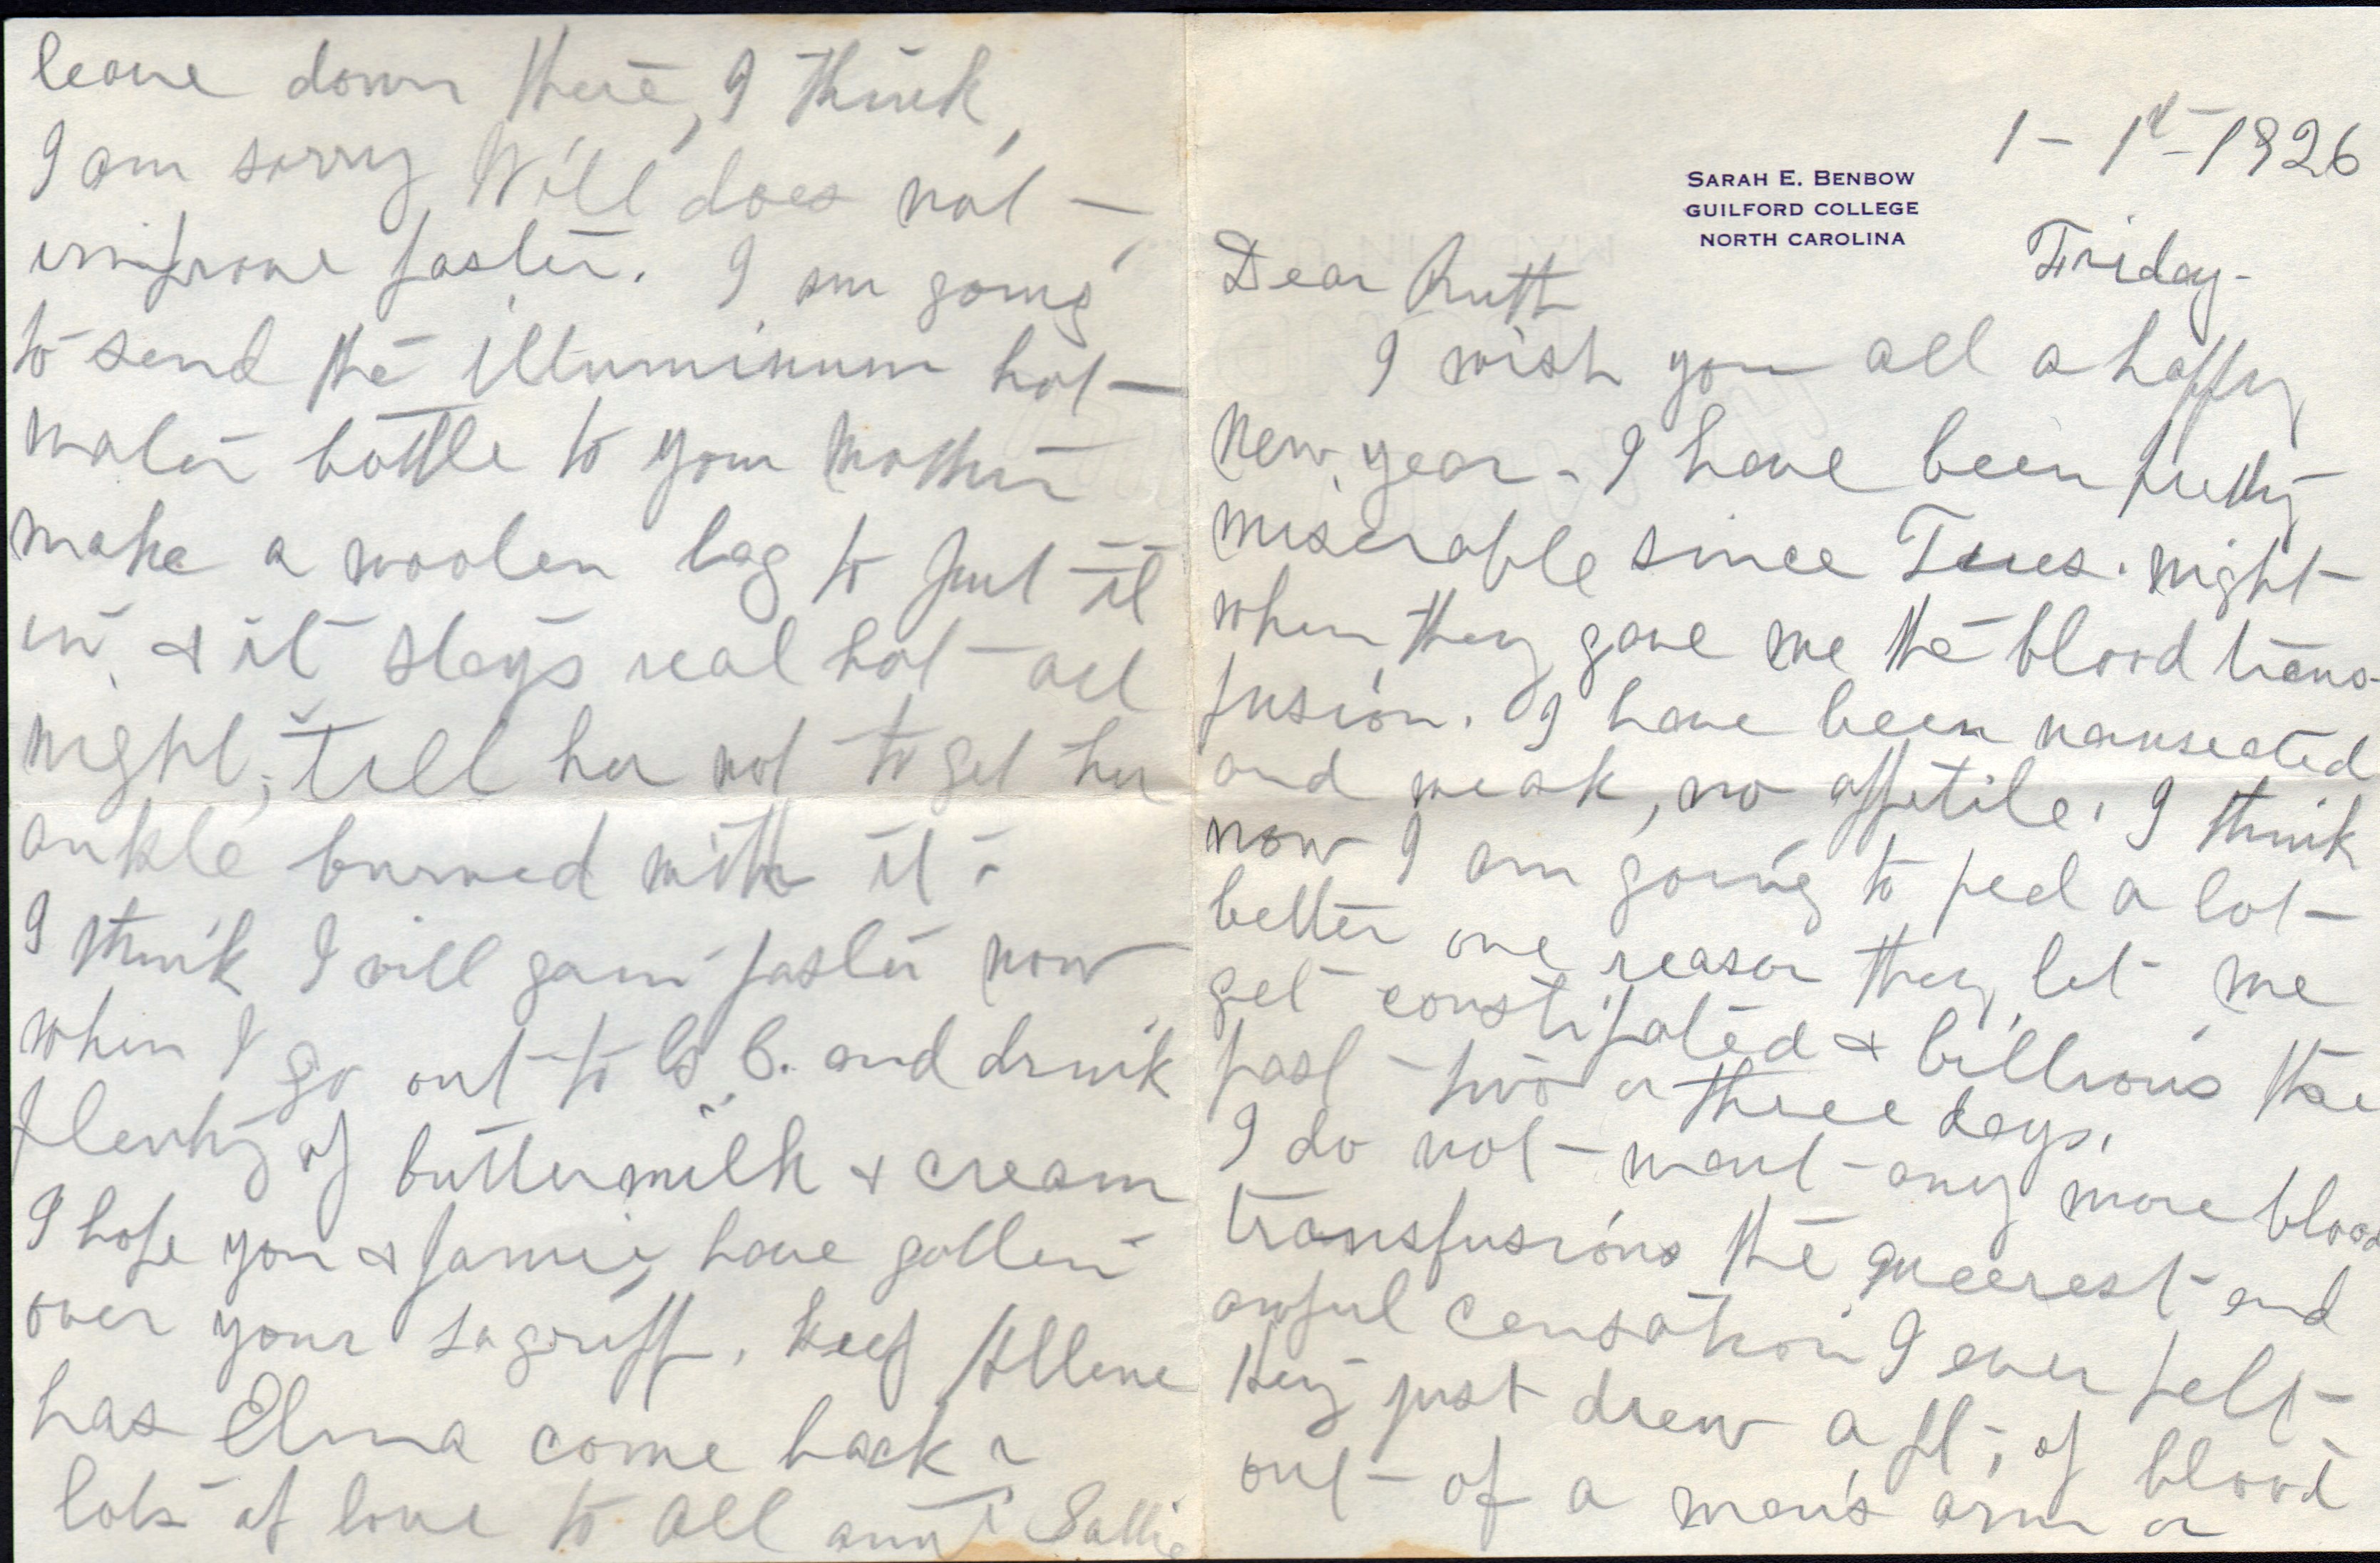 1 - 1st - 1926
SARAH E. BENBOW
GUILFORD COLLEGE
NORTH CAROLINA
Friday -
Dear Ruth
I wish you all a happy
New year - I have been pretty
miserable since Tues. night
when they gave me the blood trans-
fusion. I have been nanseated
and weak, no appetite. I think
now I am going to feel a lot
better one reason they let me
get constipated & billious the
past two or three days.
I do not want any more blood
transfusions the queerest and
awful censation I ever felt
they just drew a pt. of blood
out of a man's arm or
leave down there, I think,
I am sorry Will does not
improve faster. I am going
to send the illuminum hot
water bottle to your mother
make a woolen bag to put it
in & it stays real hot all
night, Tell her not to get her
ankle burned with it.
I think I will gain faster now
when I go out to G. C. and drink
plenty of buttermilk & cream
I hope you & Jamie have gotten
over your lagriff. Keep Allene
has Elma come back?
lots of love to all aunt Sallie